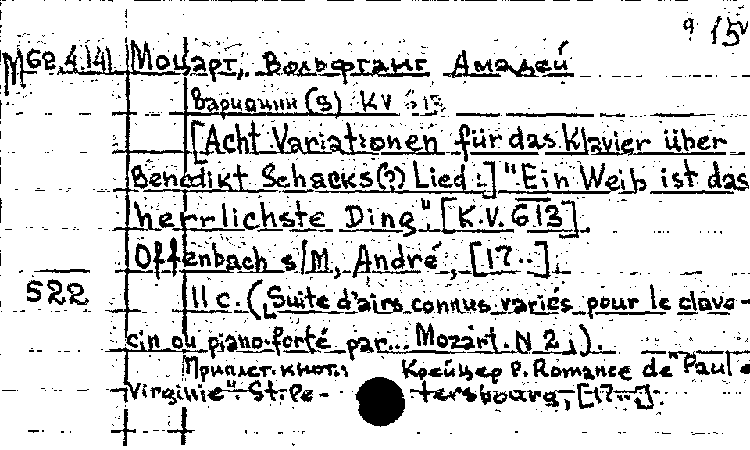 9 15
М62.4.141 Моцарт, Вольфганг Амадей
Вариации (8) KV 613
[Acht Variationen für das Klavier über
Benedikt Schacks(?) Lied:] "Ein Weib ist das
herrlichste Ding". [K.V. 613].
Offenbach s/M, André, [17..].
522 11 с. (Suite d'airs connus variés pour le clave-
cin ou piano-forté par... Mozart. N 2.).
Приплет. к нот.: Крейцер Р. Romance de "Paul e
Virginie". St. Pe- tersbourg, [17...].